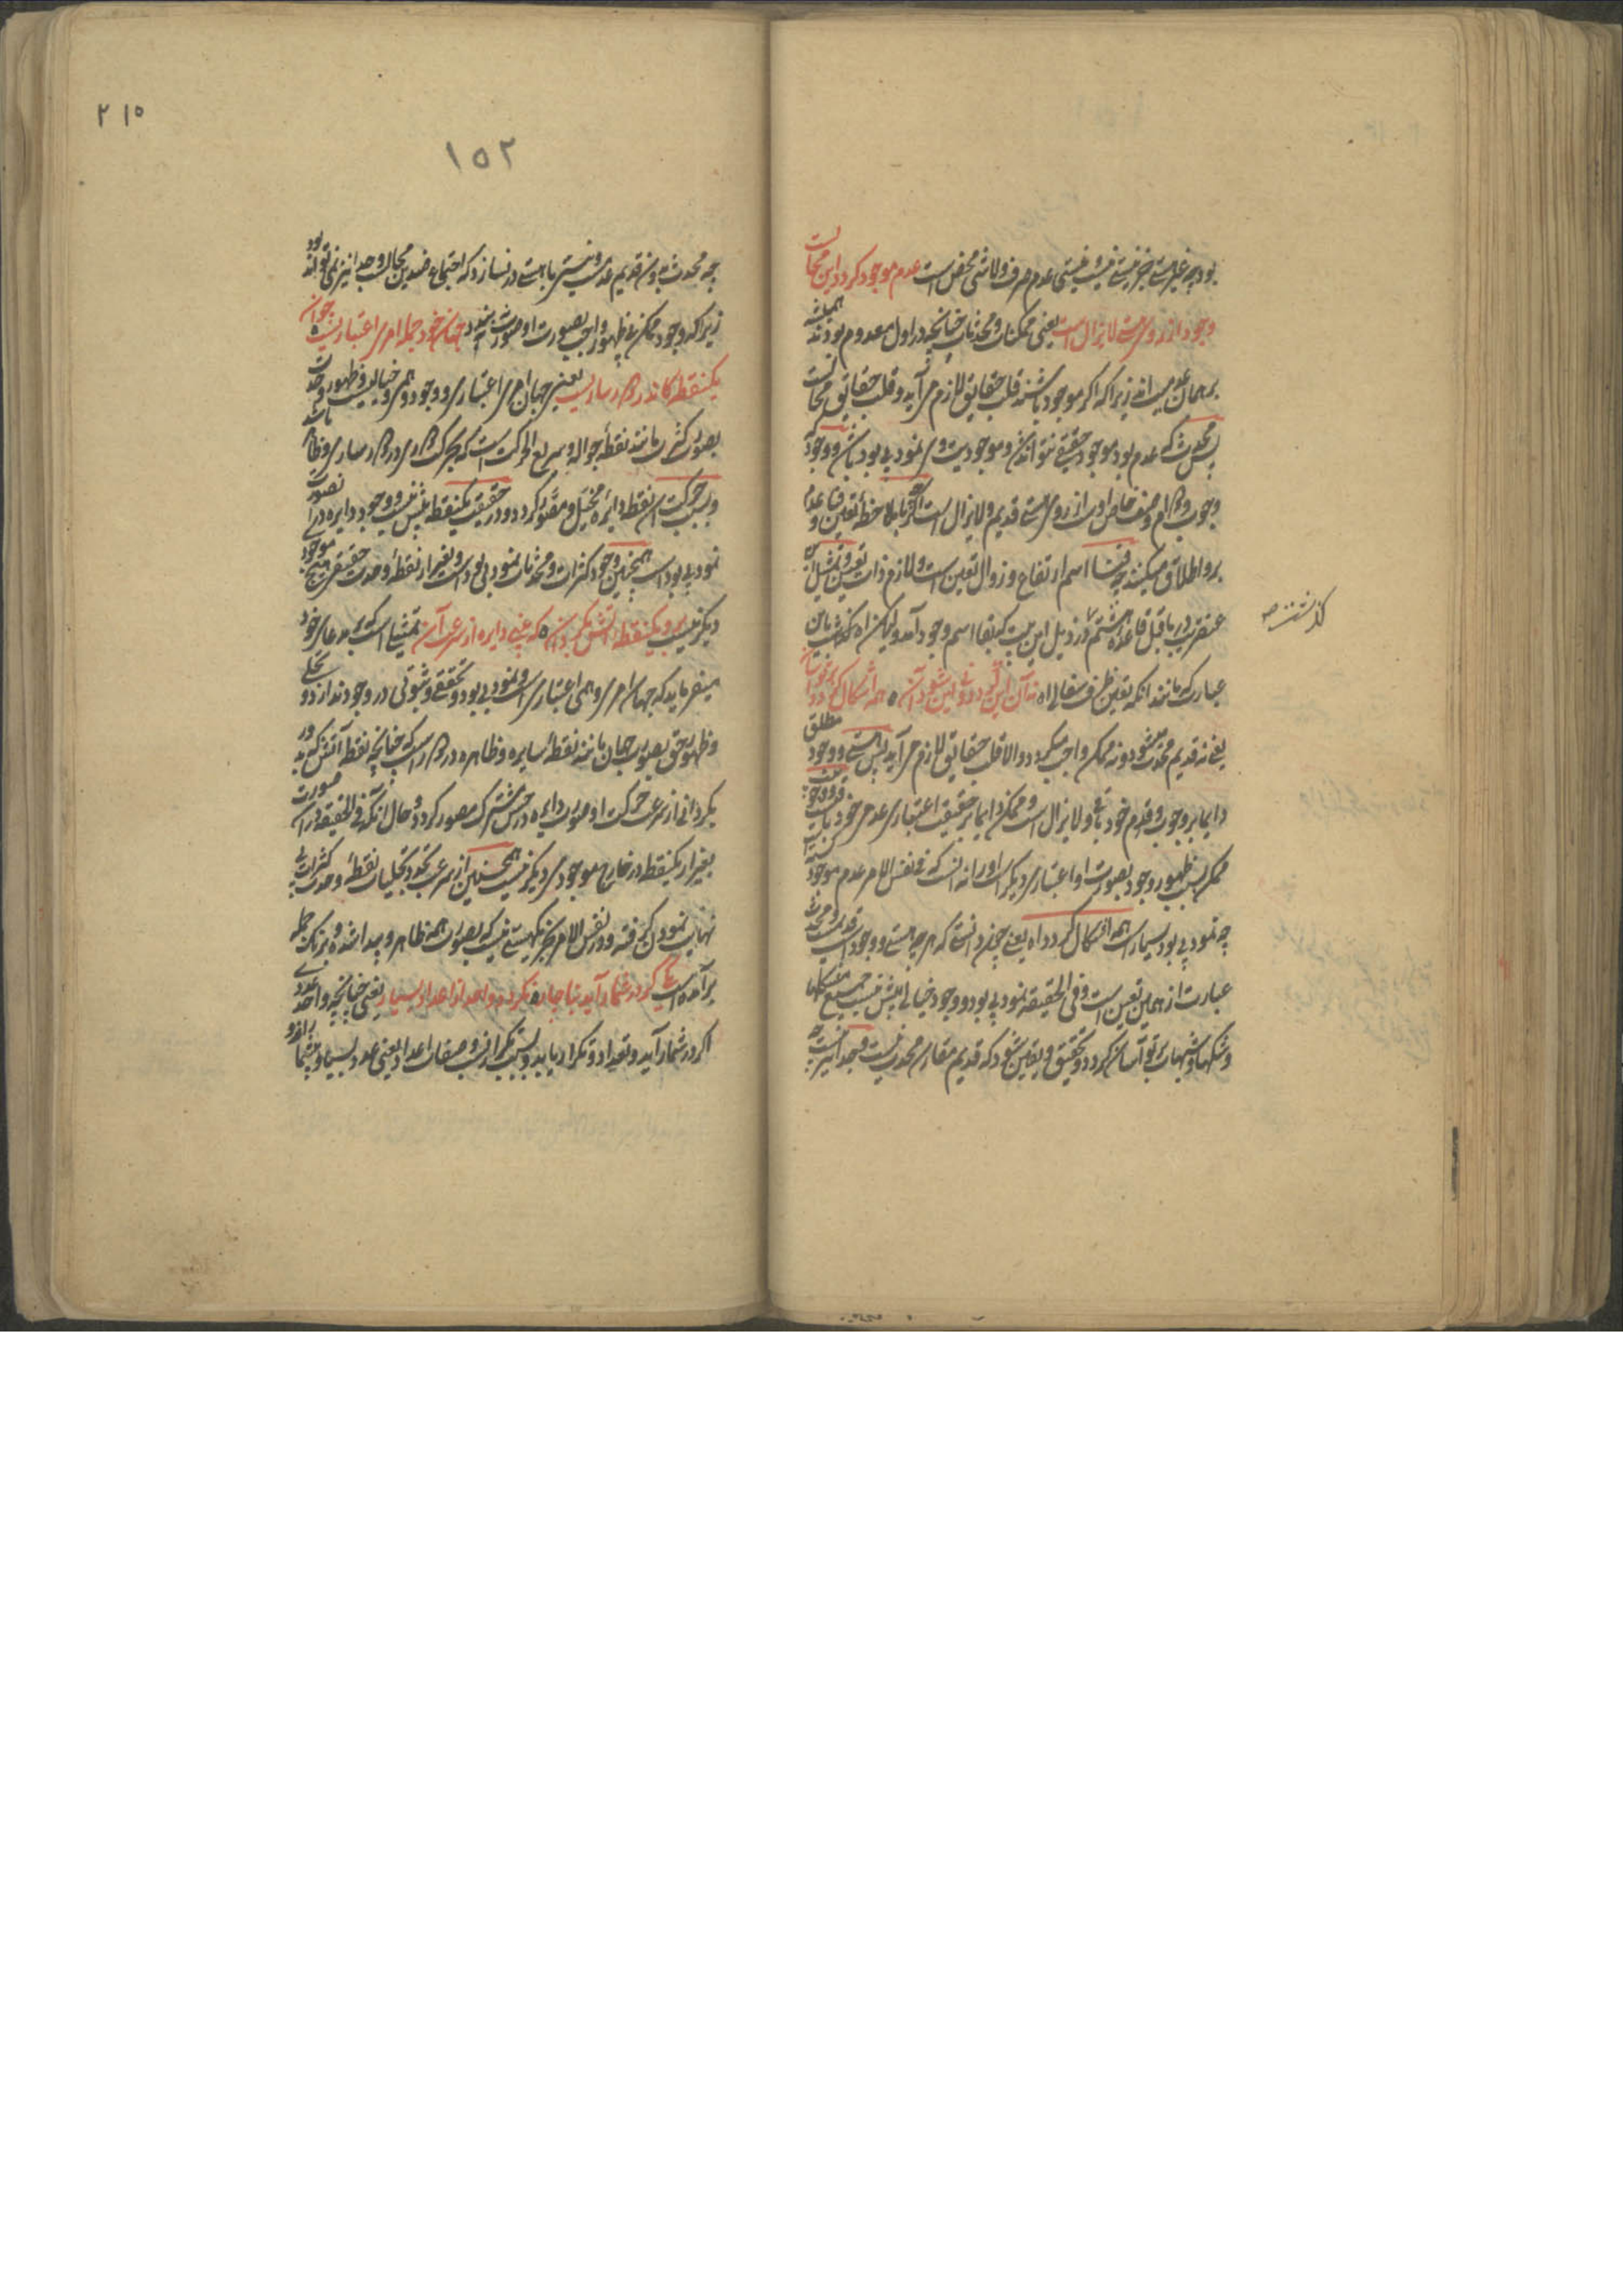 بود چه غیر هست جز نیستی نیست و نیستی عدم صرف و لاشی محض است عدم موجود کردد این محالست
وجود از روی هستی لایزال است یعنی ممکنات و محدثات چنانچه در اول معدوم بودند همیشه
بر همان عدمیت اند زیرا که اکر موجود باشند قلب حقایق لازم می آید و قلب حقایق محالست
پس محدث که عدم بود موجود حقیقی نتواند شد و موجودیت وی نمود بی بود باشد و وجود که
وجوب و دوام وصف خاص اوست از روی هستی قدیم و لایزال است اکر چه بملاحظه تعین فنا و عدم
برو اطلاق میکنند چه فنا اسم ارتفاع و زوال تعین است و لازم ذات تعین و تمثیل این
عنقریب در ما قبل قاعده هشتم در ذیل این بیت که بقا اسم وجود آمد ولیکن کذشت باین
کذشت
عبارت که مانند آنکه تعین ظرف سفالی نه آن این کردد و نه این شود آن همه اشکال کردد بر تو آسان
یعنی نه قدیم محدث میشود و نه ممکن واجب میکردد و الا قلب حقایق لازم می آید پس هستی و وجود مطلق
دایما بر وجوب و قدم خود باقی و لایزال است و ممکن دایما بر حقیقت اعتباری عدمی خود ثابت و وجود
ممکن بسبب ظهور وجود بصورت او اعتباری دیکر است او را نه آنست که فی نفس الامر عدم موجود
چه نمود بی بود بسیار است همه اشکال کردد یعنی چون دانستی که هر چه هستی و وجود است قدیمست و محدث
عبارت از همین تعین است و فی الحقیقه نمود بی بود و وجود خیالی بیش نیست جمیع مشکلها
و شکها و شبهات بر تو آسان کردد و تحقیق و یقین شود که قدیم مقارن محدث نیست و جدا نیز نیست
۲۱۵
۱۵۲
چه محدث بدون قدیم عدمست و نیستی با هستی در نسازد که اجتماع ضدین محالست و جدا نیز نمی تواند بود
زیرا که وجود ممکن بی ظهور واجب بصورت او متصور نیست جهان خود جمله امر اعتباریست چو آن
یکنقطه کاندر دور ساریست یعنی جهان امری اعتباری و وجود وهمی و خیالیست و ظهور وحدت
بصورت کثرت مانند نقطه جواله و سریع الحرکت است که بحرکت دوری در دور ساری و ظاهر باشد
و بسبب حرکت آن نقطه دایره متخیل و مصور کردد و در حقیقت یکنقطه بیش نیست و وجود دایره در تصور
نمود بی بود است همچنین وجود کثرات و محدثات نمود بی بود است و بغیر از نقطه وحدت حقیقی هیچ موجود
دیکر نیست برو یکنقطه آتش بکردان که بینی دایره از سرعت آن تمثیلی است که بر مدعای خود
میفرماید که جهان امری وهمی اعتباری است و نمود بی بود و تحقق و ثبوتی در وجود ندارد و تجلی
و ظهور حق بصورت جهان مانند نقطه سایره و ظاهره در دور است که چنانچه نقطه آتش که به دور
بکردانی از سرعت حرکت او صورت دایره در حس مشترک مصور کردد و حال آنکه فی الحقیقه در آن صورت
بغیر از یکنقطه در خارج موجودی دیکر نیست همچنین از سرعت تجدد تجلیات نقطه وحدت کثرات بی
نهایت نمودن کرفته و در نفس الامر بجز یک هستی نیست که بصورت همه ظاهر و پیدا شده و برنک جمله
برآمده است یکی کر در شمار آید بناچار نکردد واحد از اعداد بسیار یعنی چنانچه واحد عددی
اکر در شمار آید و تعداد و تکرار یابد و بسبب تکرار بصفات اعداد یعنی عدد بسیار و بیشمار